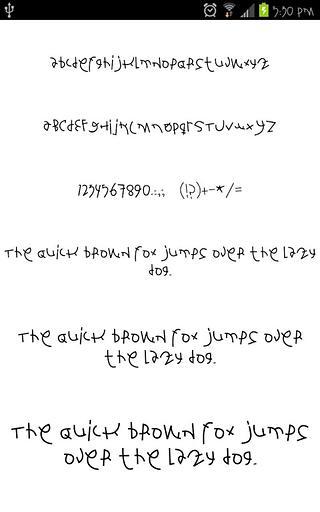 5:50 PM
abcdefghijklmnopqrstuvwxyz
ABCDEFGHIJKLMNOPQRSTUVWXYZ
1234567890.:,; (!?)+-*/=
The quick brown fox jumps over the lazy
dog.
The quick brown fox jumps over
the lazy dog.
The quick brown fox jumps
over the lazy dog.